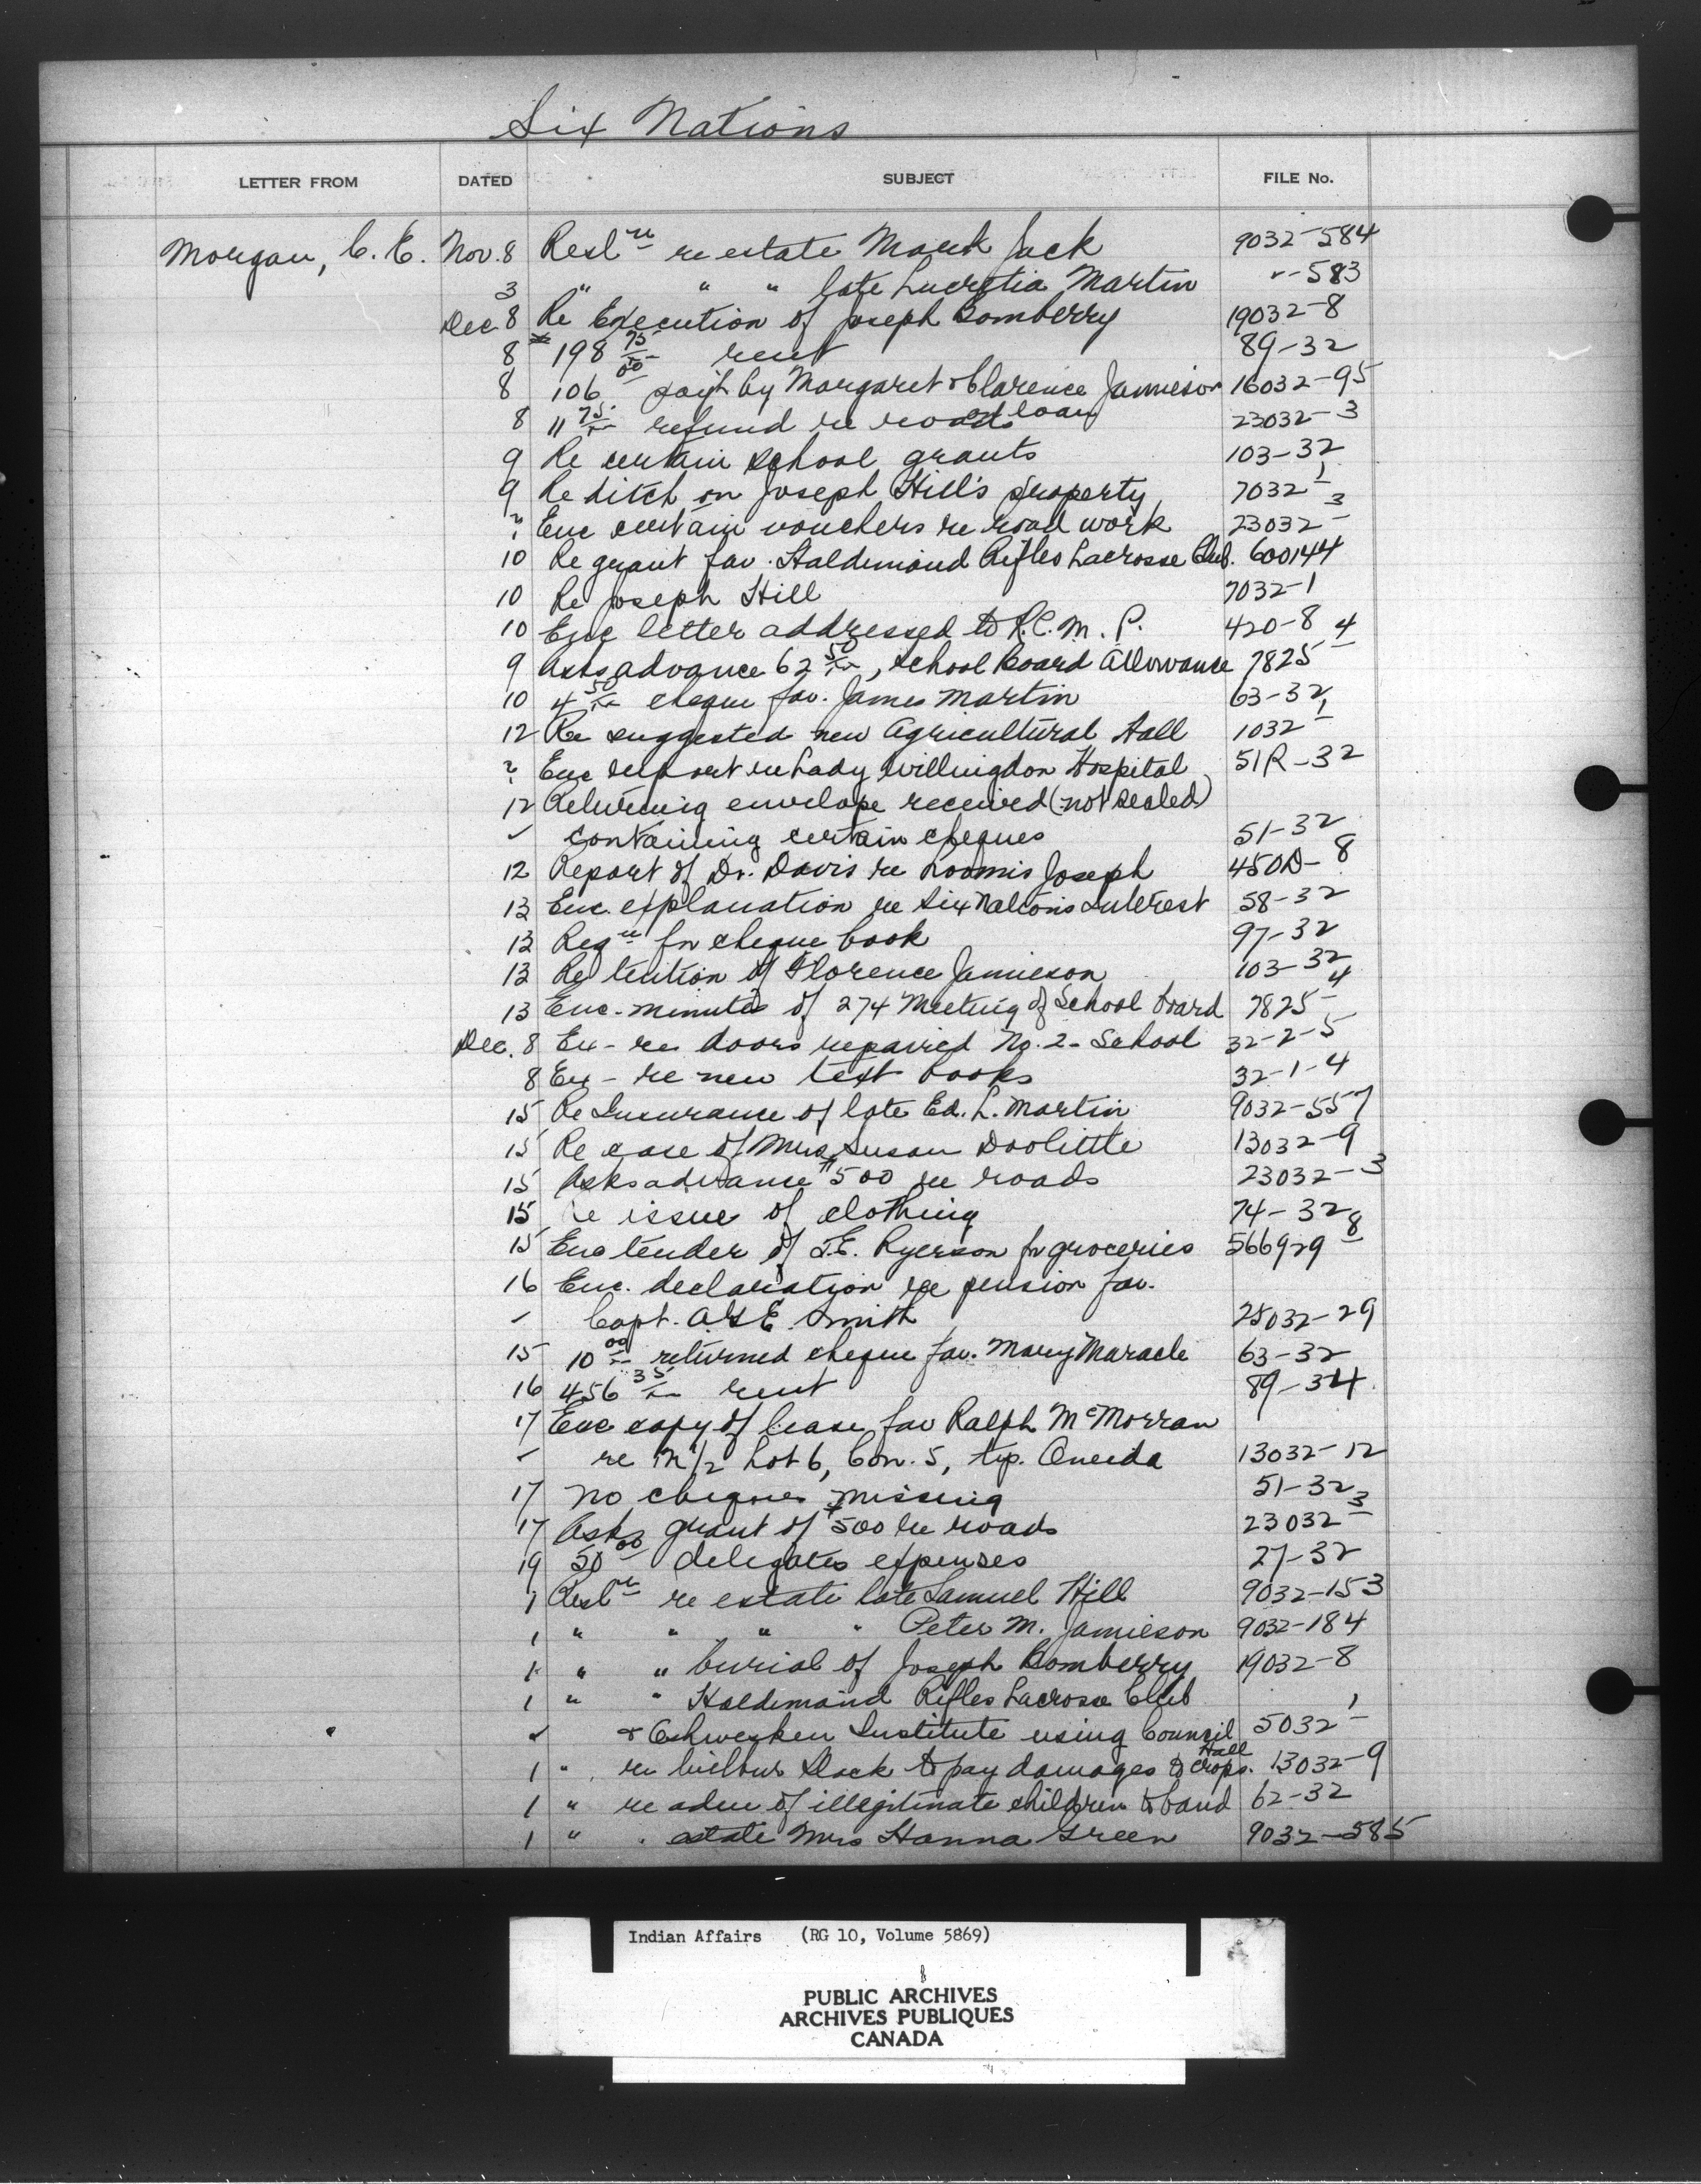 Six Nations
LETTER FROM DATED SUBJECT FILE No.
Morgan, C. E. Nov. 8 Resl re estate Mark Jack 9032-584
3 " " " late Lucretia Martin -583
Dec 8 Re Execution of Joseph Bomberry 19032-8
8 198 75 rent 89-32
8 106 00 by Margaret & Clarence Jamieson 16032-95
8 11 75 refund re roads loan 23032-3
9 Re certain school grants 103-32
9 Re ditch on Joseph Hill's property 7032-1
? Enc certain vouchers re road work 23032-3
10 Re grant fav. Haldimand Rifles Lacrosse Club. 600144
10 Re Joseph Hill 7032-1
10 Enc letter addressed to R.C.M.P. 420-8
9 Asks advance 62 50, School Board Allowance 7825-4
10 4 50 cheque fav. James Martin 63-32
12 Re suggested new Agricultural Hall 1032-1
? Enc report re Lady Willingdon Hospital 51R-32
12 Returning envelope received (not sealed)
containing certain cheques 51-32
12 Report of Dr. Davis re Loomis Joseph 450D-8
13 Enc. explanation re Six Nations Interest 58-32
13 Reqn for cheque book 97-32
13 Re tuition of Florence Jamieson 103-32
13 Enc. minutes of 274 Meeting of School Board 7825-4
Dec. 8 Ex- re doors repaired No. 2- School 32-2-5
8 Ex- re new text books 32-1-4
15 Re Insurance of late Ed. L. Martin 9032-557
15 Re case of Mrs Susan Doolittle 13032-9
15 Asks advance $500 re roads 23032-3
15 re issue of clothing 74-32
15 Enc tender of J.E. Ryerson for groceries 566929-8
16 Enc. declaration re pension fav.
Capt. A.G.E. Smith 25032-29
15 10 00 returned cheque fav. Mary Maracle 63-32
16 456 35 rent 89-34
17 Enc copy of lease fav Ralph McMorran
re N 1/2 Lot 6, Con. 5, tp. Oneida 13032-12
17 No cheques missing 51-32
17 Asks grant of $500 re roads 23032-3
19 50 00 delegates expenses 27-32
1 Resl re estate late Samuel Hill 9032-153
1 " " " " Peter M. Jamieson 9032-184
1 " " burial of Joseph Bomberry 19032-8
1 " " Haldimand Rifles Lacrosse Club
& Ohsweken Institute using Council Hall 5032-1
1 " re Wilbur Slack to pay damages to crops. 13032-9
1 " re adm of illegitimate children to band 62-32
1 " " estate Mrs Hanna Green 9032-585
Indian Affairs (RG 10, Volume 5869)
PUBLIC ARCHIVES
ARCHIVES PUBLIQUES
CANADA